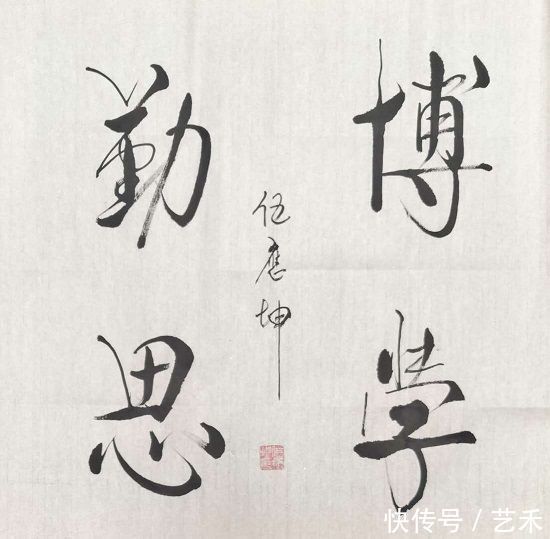 博学
勤思
伍應坤
快传号 / 艺禾